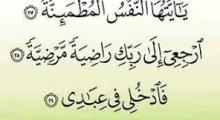 يَـٰٓأَيَّتُهَا ٱلنَّفۡسُ ٱلۡمُطۡمَئِنَّةُ ٢٧
ٱرۡجِعِىٓ إِلَىٰ رَبِّكِ رَاضِيَةٗ مَّرۡضِيَّةٗ ٢٨
فَٱدۡخُلِى فِى عِبَـٰدِى ٢٩